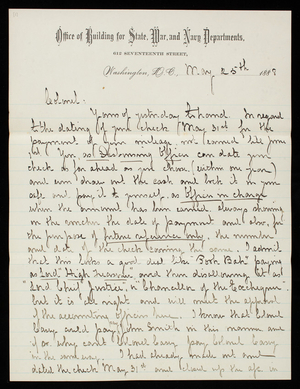 Office of Building for State, War, and Navy Departments,
615 SEVENTEENTH STREET,
Washington, D.C., May 25th 188
Colonel:
Yours of yesterday to hand. In regard
to the dating of your check May 31st for the
payment of your mileage not earned till June
You, as Disbursing Officer can date your
check as far ahead as you choose, (within one year)
and can draw out the cash and lock it in your
safe and pay it to yourself, as Officer in charge
when the amount has been earned, always showing
on the voucher the date of payment and also, for
the purpose of future reference only, the number
and date of the check covering the same. I admit
that this looks a good deal like "Pooh Bah" paying
as "Lord High Treasurer" and then disallowing it as
"Lord Chief Justice," or "Chancellor of the Exchequer"
but it is all right and will meet the approval
of the accounting officers here. I know that Colonel
Casey could pay John Smith in this manner and
if so why can't Colonel Casey pay Colonel Casey
in the same way. I had already made out and
dated the check May 31st and closed up the a/c in